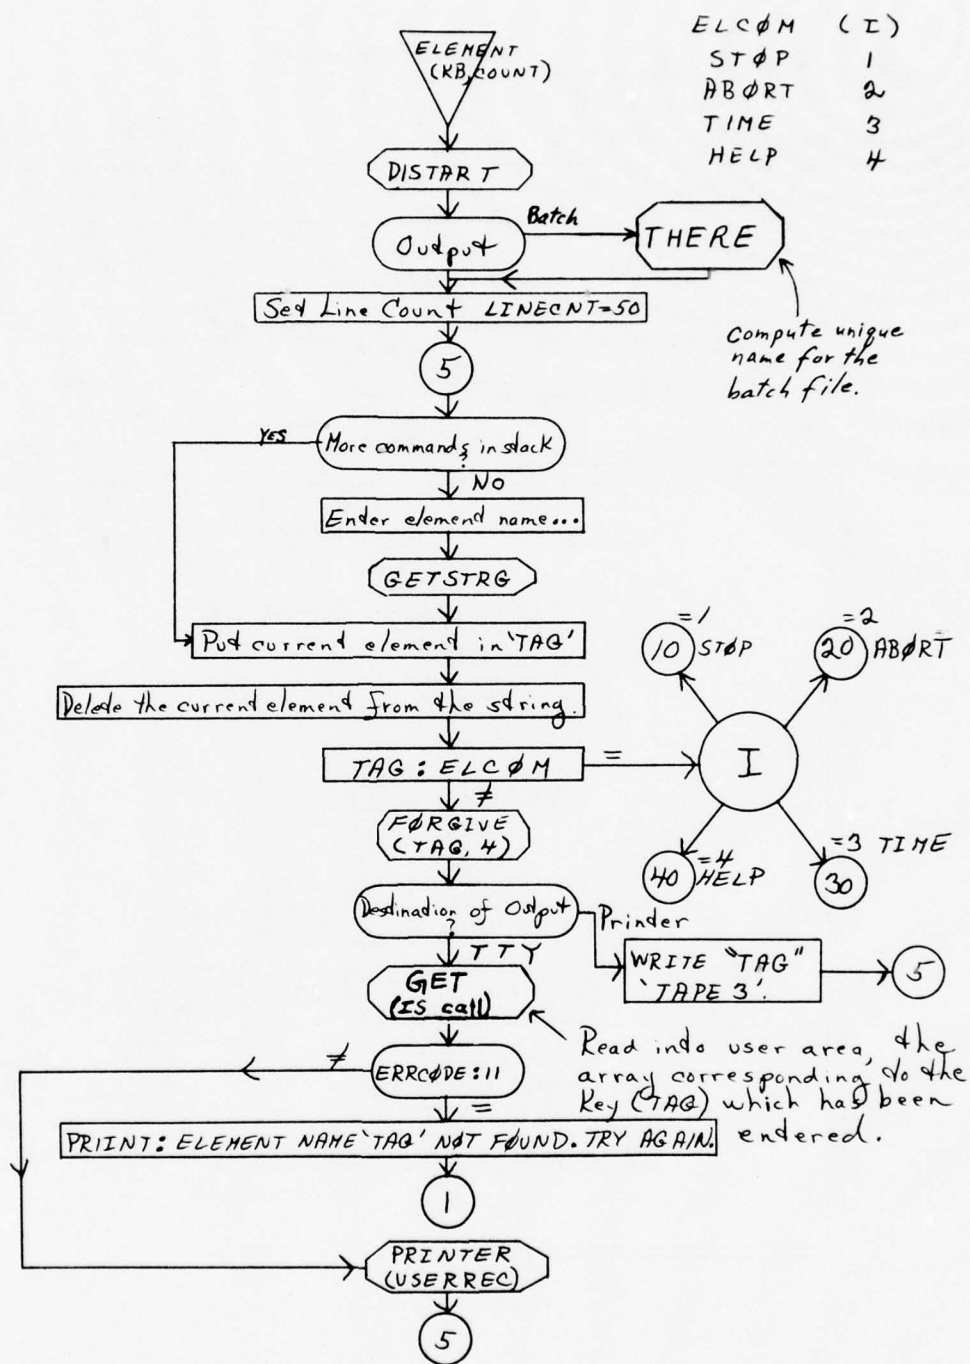 ELEMENT
(KB,COUNT)
ELCØM (I)
STØP 1
ABØRT 2
TIME 3
HELP 4
DISTART
Output
Batch
THERE
Set Line Count LINECNT=50
Compute unique
name for the
batch file.
5
More commands in stack
?
YES
NO
Enter element name...
GETSTRG
Put current element in 'TAG'
Delete the current element from the string.
TAG : ELCØM
=
≠
I
=1
10 STØP
=2
20 ABØRT
=3 TIME
30
=4
40 HELP
FØRGIVE
(TAG, 4)
Destination of Output
?
Printer
TTY
WRITE "TAG"
'TAPE 3'.
5
GET
(IS call)
Read into user area, the
array corresponding to the
Key (TAG) which has been
entered.
ERRCØDE : 11
≠
=
PRIINT: ELEMENT NAME 'TAG' NØT FØUND. TRY AGAIN.
1
PRINTER
(USERREC)
5